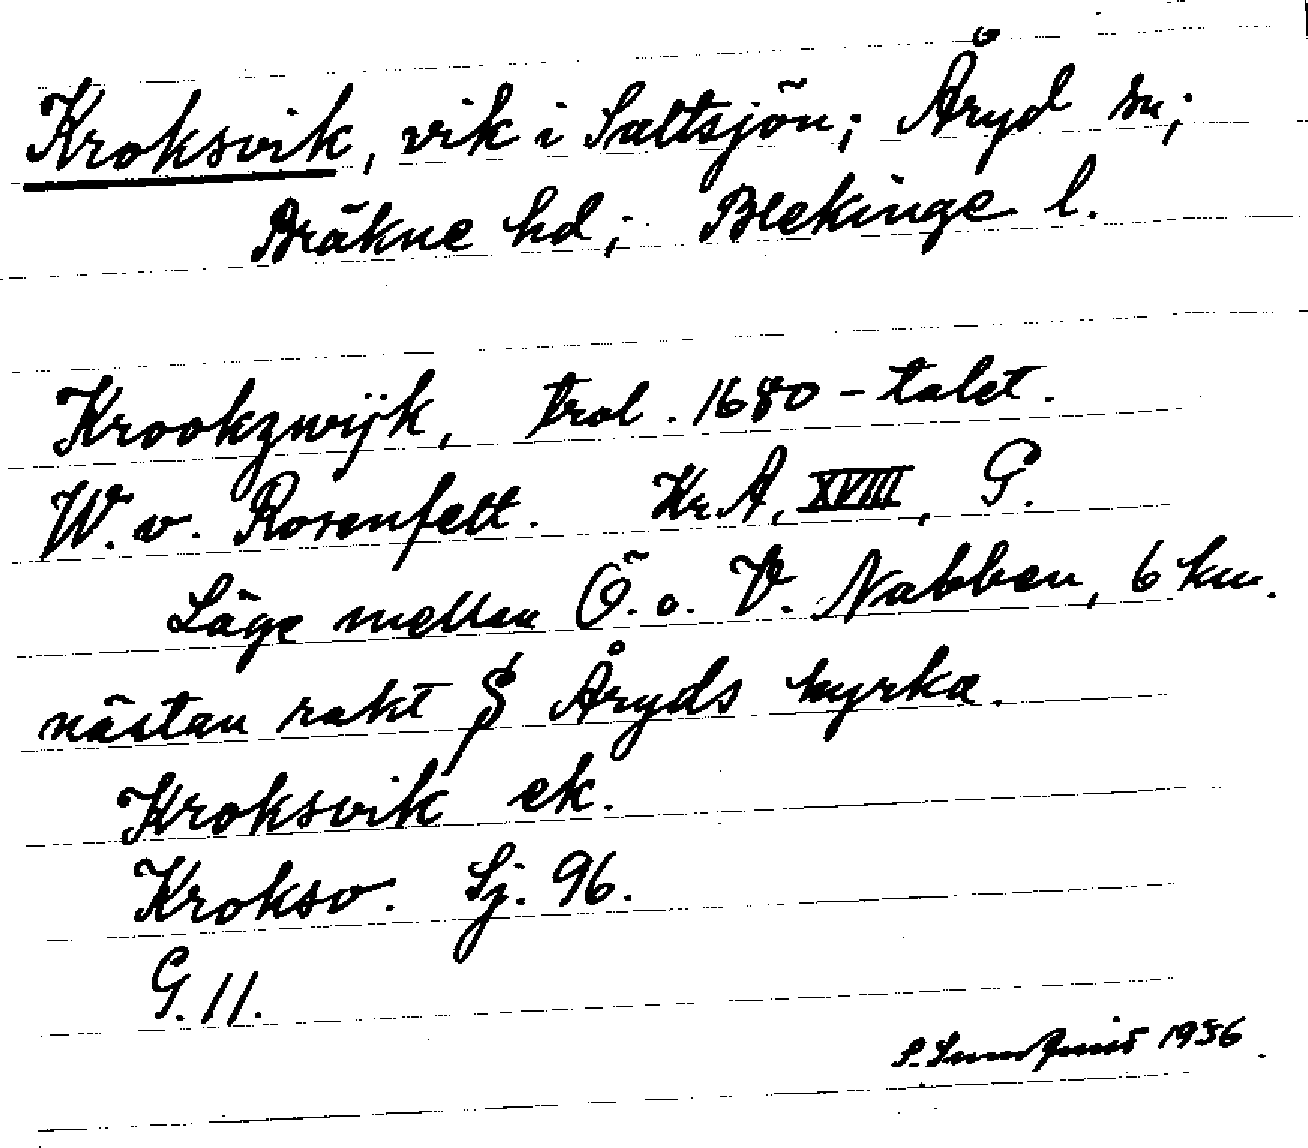 Kroksvik, vik i Saltsjön; Åryd sn;
Bräkne hd; Blekinge l.
Krookzwijk, trol. 1680-talet.
W. v. Rosenfelt. Kr.A, XVIII, G.
Läge mellan Ö. o. V. Nabben, 6 km.
nästan rakt S Åryds kyrka.
Kroksvik ek.
Kroksv. Sj. 96.
G. 11.
1956